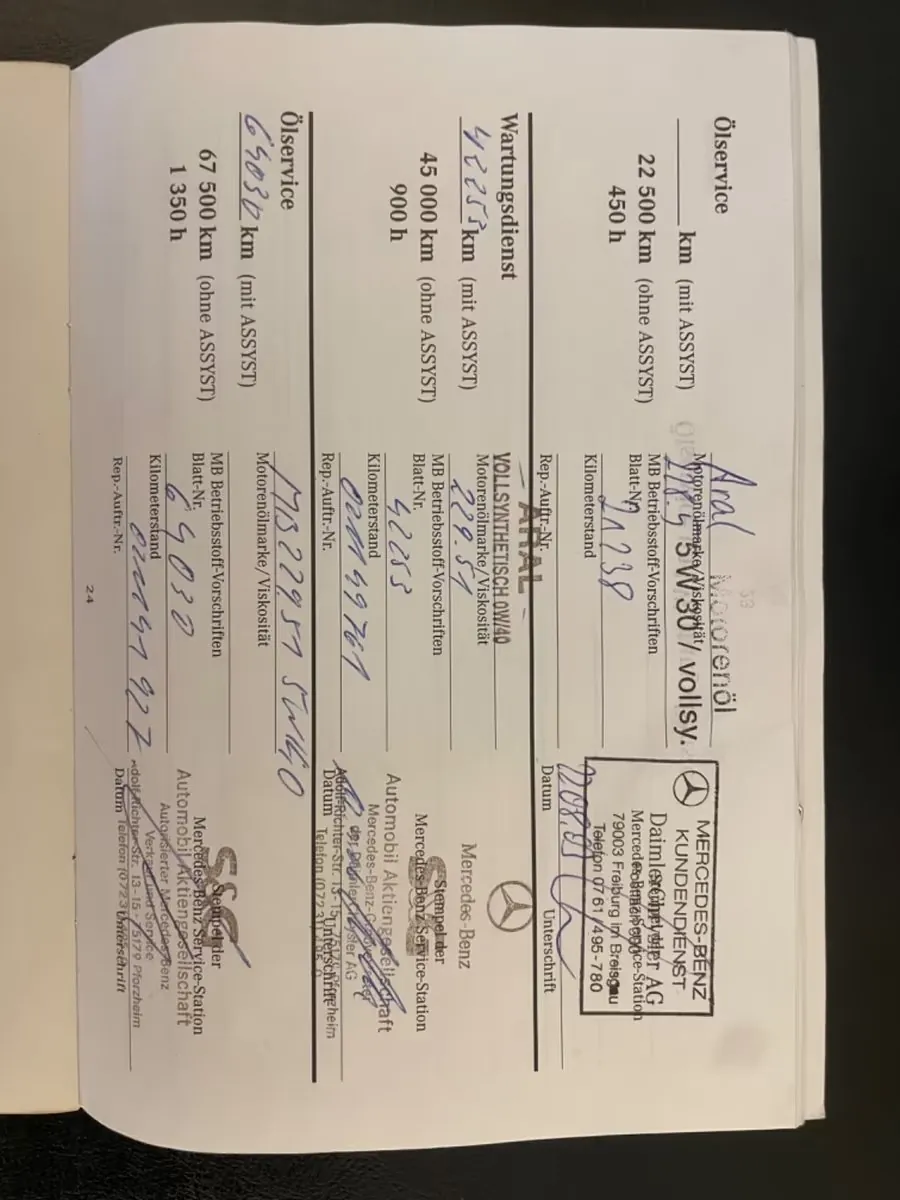 Ölservice
km (mit ASSYST)
22 500 km (ohne ASSYST)
450 h
Aral Motorenöl
Motorenölmarke/Viskosität
5W30 / vollsy.
MB Betriebsstoff-Vorschriften
Blatt-Nr.
21238
Kilometerstand
Rep.-Auftr.-Nr.
MERCEDES-BENZ
KUNDENDIENST
DaimlerChrysler AG
Mercedes-Benz Service-Station
79003 Freiburg im Breisgau
Telefon 07 61 / 495 - 780
Datum Unterschrift
Wartungsdienst
42253 km (mit ASSYST)
45 000 km (ohne ASSYST)
900 h
— ARAL —
VOLLSYNTHETISCH 0W/40
Motorenölmarke/Viskosität
229.51
MB Betriebsstoff-Vorschriften
Blatt-Nr.
42253
Kilometerstand
Rep.-Auftr.-Nr.
Mercedes-Benz
Stempel der
Mercedes-Benz Service-Station
Automobil Aktiengesellschaft
Adolf-Richter-Str. 13-15, 75179 Pforzheim
Datum Unterschrift
Ölservice
64030 km (mit ASSYST)
67 500 km (ohne ASSYST)
1 350 h
MB 229.51 5W40
Motorenölmarke/Viskosität
MB Betriebsstoff-Vorschriften
Blatt-Nr.
64030
Kilometerstand
Rep.-Auftr.-Nr.
Stempel der
Mercedes-Benz Service-Station
Automobil Aktiengesellschaft
Autorisierter Mercedes-Benz
Verkauf und Service
Adolf-Richter-Str. 13-15 - 75179 Pforzheim
Datum Unterschrift
24